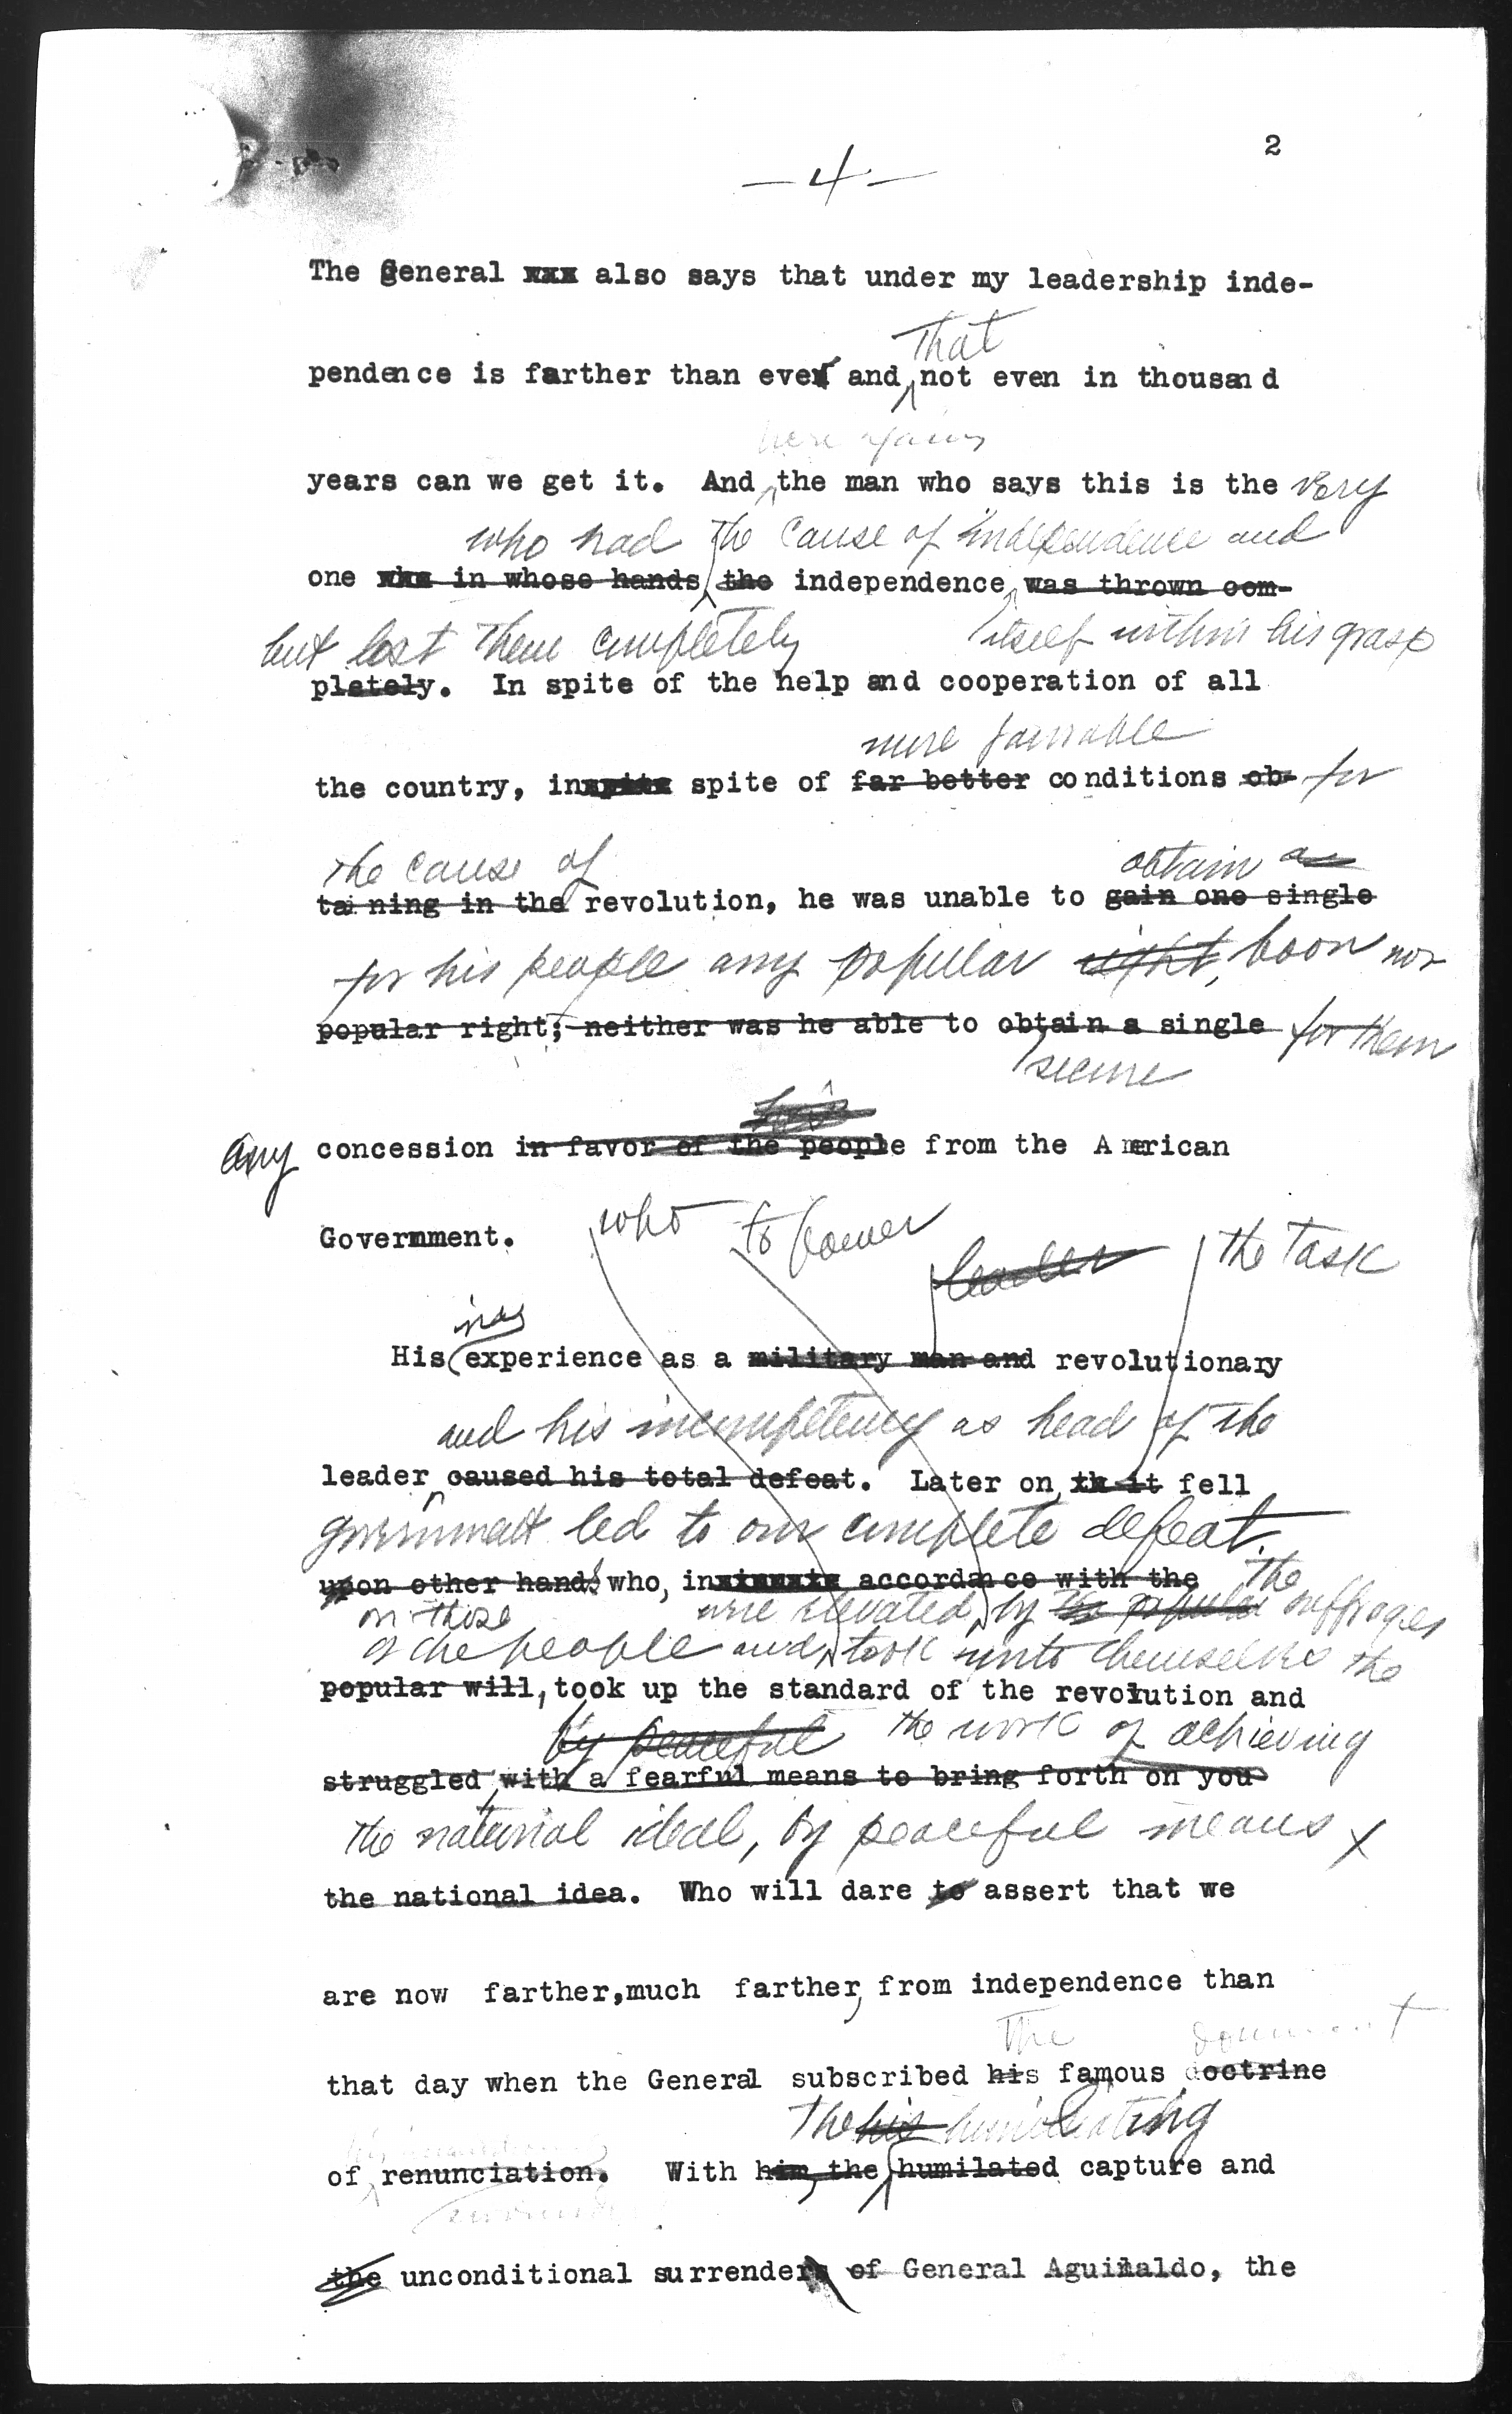 2
—4—
The General xxx also says that under my leadership inde-
That
pendence is farther than ever and not even in thousand
here again
years can we get it. And the man who says this is the very
who had the cause of independence and
one who in whose hands the independence was thrown com-
but lost them completely itself within his grasp
pletely. In spite of the help and cooperation of all
more favorable
the country, in spite spite of far better conditions ob- for
the cause of obtain an
taining in the revolution, he was unable to gain one single
for his people any popular right, boon nor
popular right; neither was he able to obtain a single for them
secure
his
any concession in favor of the people from the American
Government.
who to power leader the task
inex
His experience as a military man and revolutionary
and his incompetency as head of the
leader caused his total defeat. Later on, th it fell
government led to our complete defeat.
upon other hands who, in accordance with the the
on those were elevated by the popular suffrages
of the people and took unto themselves the
popular will, took up the standard of the revolution and
by peaceful the work of achieving
struggled with a fearful means to bring forth on you
the national ideal, by peaceful means x
the national idea. Who will dare to assert that we
are now farther, much farther, from independence than
The document
that day when the General subscribed his famous doctrine
The his humiliating
of renunciation. With him, the humilated capture and
surrender
the unconditional surrender of General Aguinaldo, the